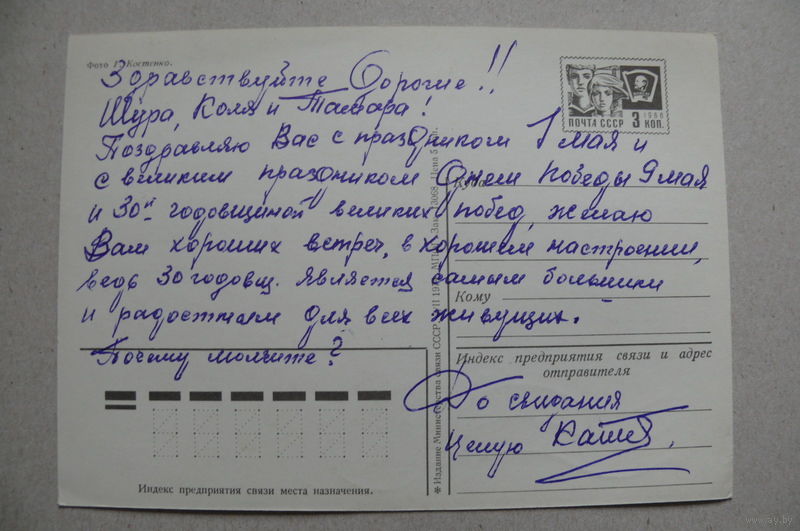 Фото Г. Костенко.
Здравствуйте Дорогие!!
Шура, Коля и Тамара!
Поздравляю Вас с праздником 1 мая и
с великим праздником Днем Победы 9 мая
и 30й годовщиной великих побед, желаю
Вам хороших встреч, в хорошем настроении,
ведь 30 годовщ. является самым большим
и радостным для всех живущих.
Почему молчите?
До свидания
Целую Катя.
ПОЧТА СССР 3 КОП.
1966
Куда
Кому
Индекс предприятия связи и адрес
отправителя
Индекс предприятия связи места назначения.
* Издание Министерства связи СССР
www.ay.by